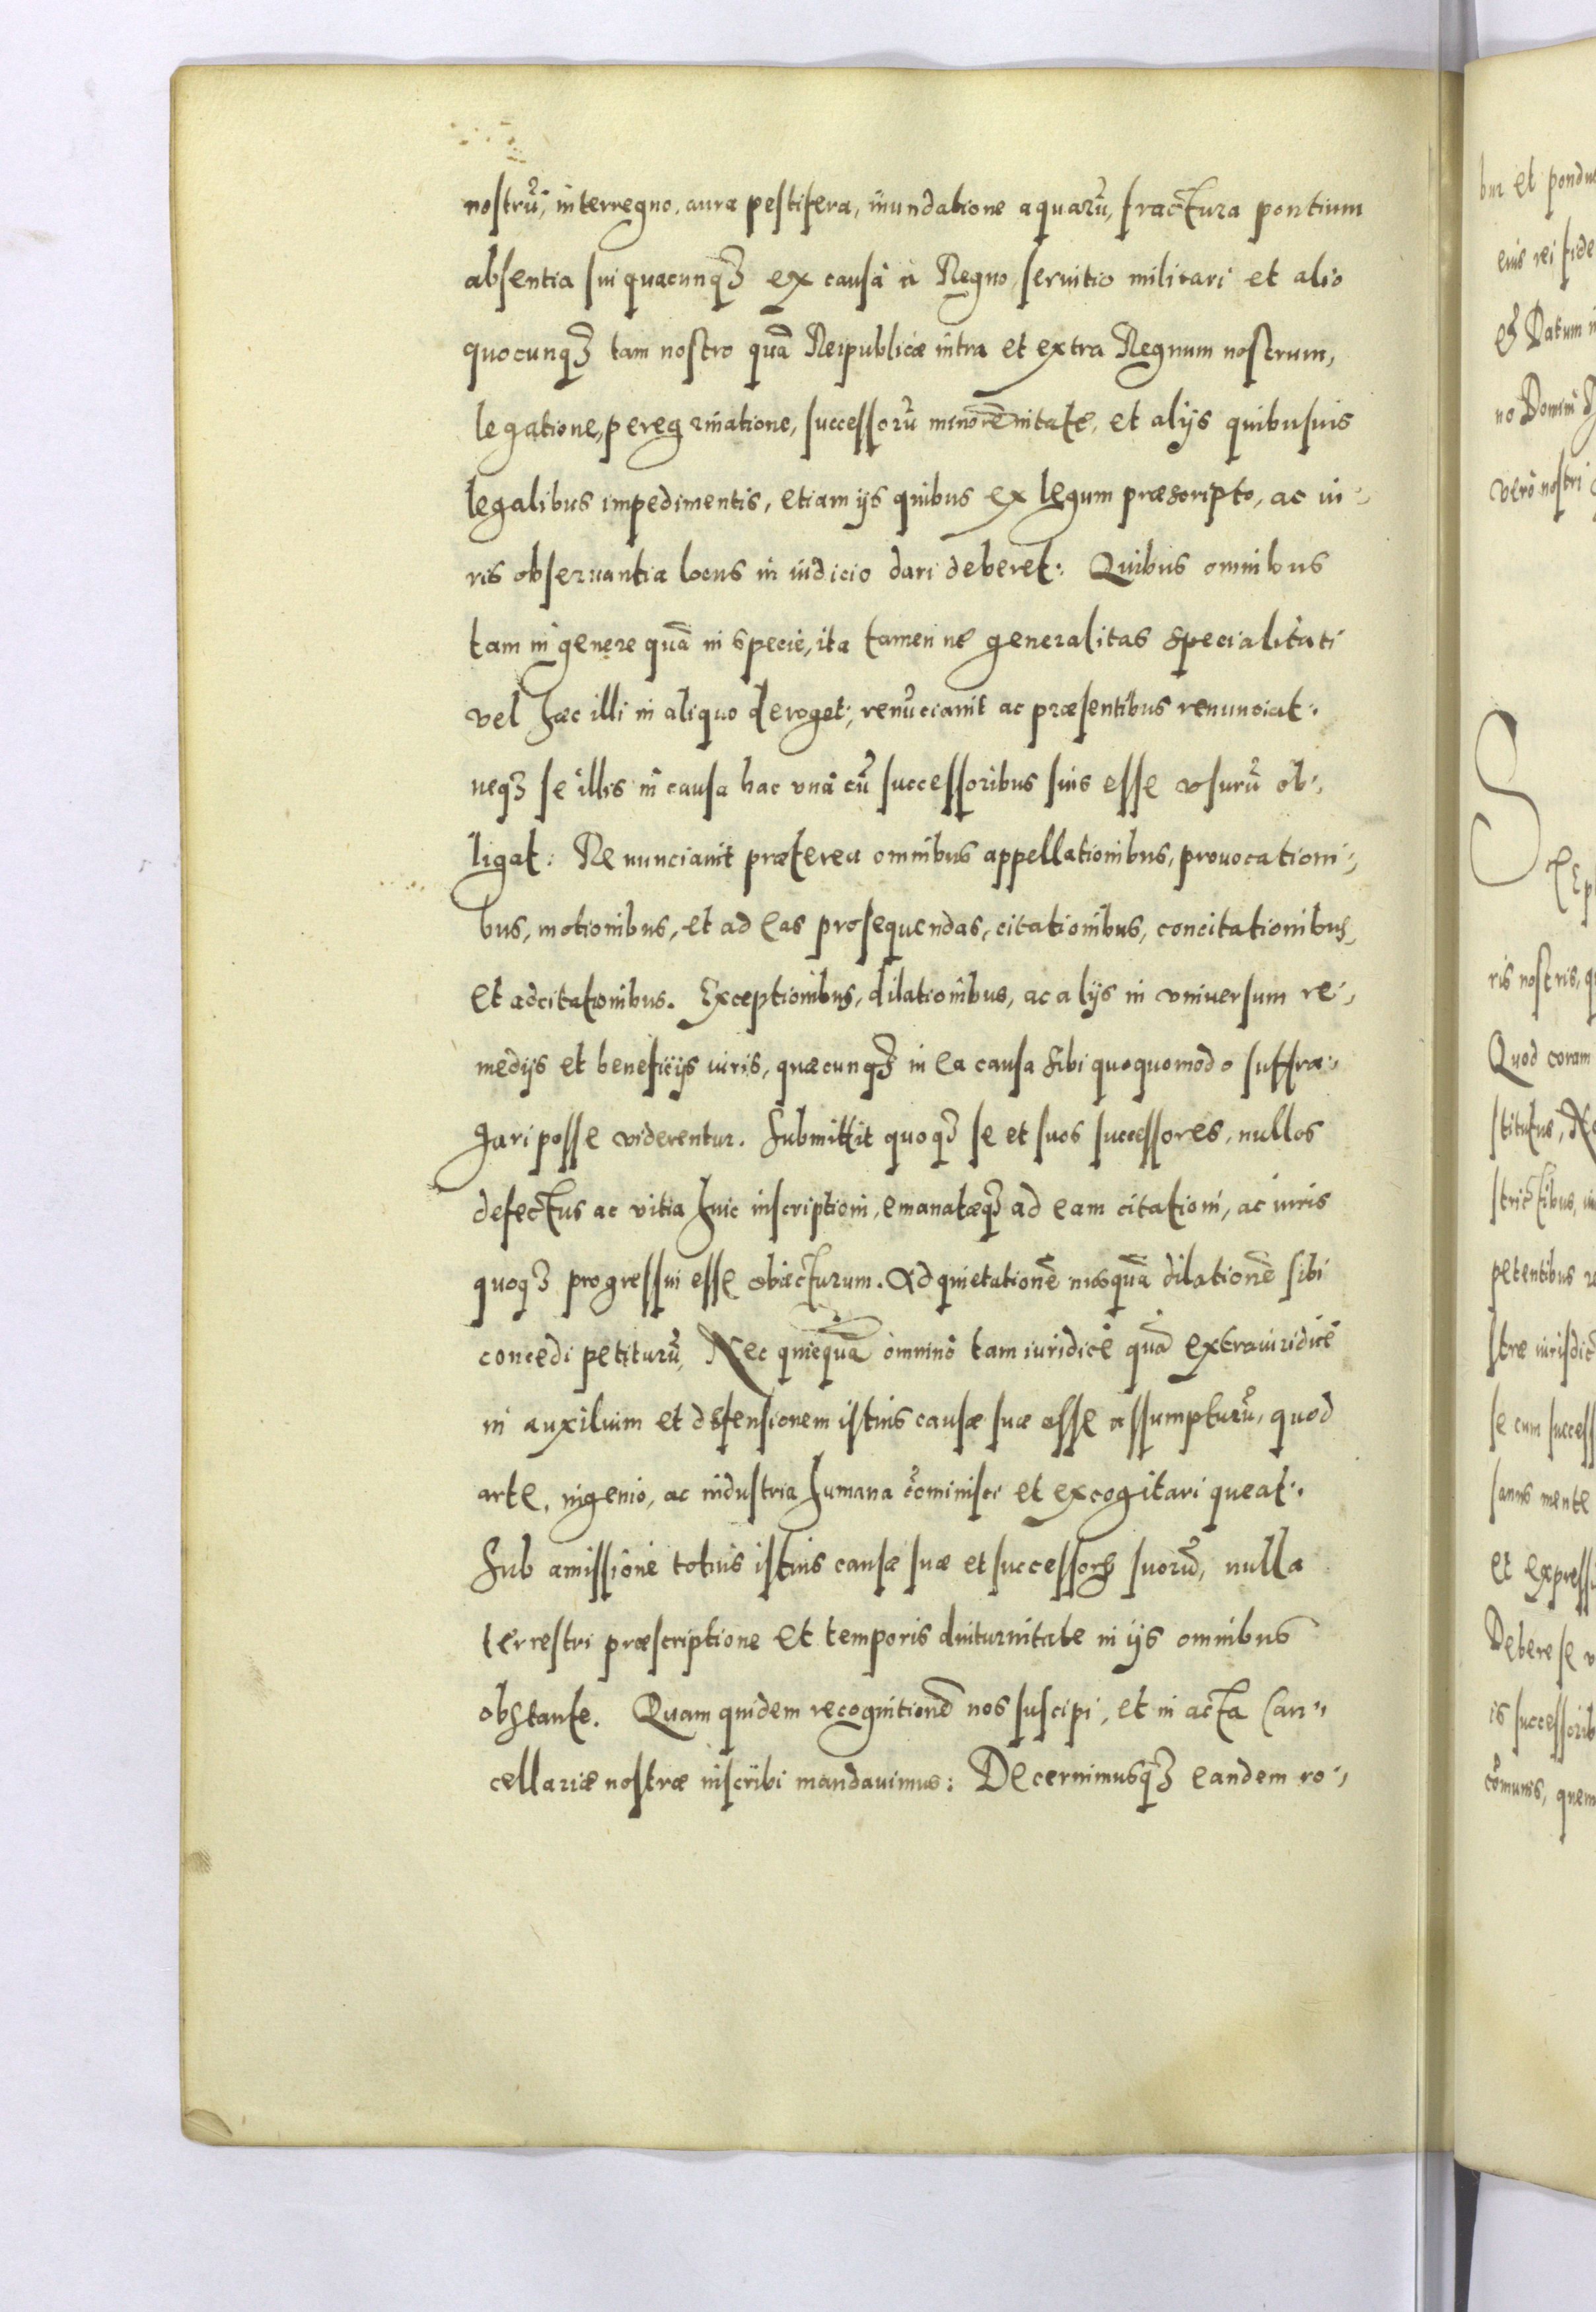 nostrũ, interregno, aura pestifera, inundatione aquarũ, fractura pontium
absentia sui quacunq3 ex causa à Regno, seruitio militari et alio
quocunq3 tam nostro quã Reipublicæ intra et extra Regnum nostrum,
legatione, peregrinatione, successorũ minorẽnitate, et alijs quibusuis
legalibus impedimentis, etiam ijs quibus ex legum præscripto, ac iu-
ris obseruantia locus in iudicio dari deberet: Quibus omnibus
tam in genere quã in specie, ita tamen ne generalitas specialitati
vel hæc illi in aliquo deroget, renũciauit ac præsentibus renunciat:
neq3 se illis in causa hac vnà cũ successoribus suis esse vsurũ ob-
ligat: Renunciauit præterea omnibus appellationibus, prouocationi-
bus, motionibus, et ad eas prosequendas, citationibus, concitationibus,
et adcitationibus. Exceptionibus, dilationibus, ac alijs in vniuersum re-
medijs et beneficijs iuris, quæcunq3 in ea causa sibi quoquomodo suffra-
gari posse viderentur. Submittit quoq3 se et suos successores, nullos
defectus ac vitia huic inscriptioni, emanatæq3 ad eam citationi, ac iuris
quoq3 progressui esse obiecturum. Ad quietationẽ nusquã dilationẽ sibi
concedi petiturũ, Nec quicquã omninò tam iuridicè quã extraiuridicè
in auxilium et defensionem istius causæ suæ esse assumpturũ, quod
arte, ingenio, ac industria humana cõminisci et excogitari queat:
Sub amissione totius istius causæ suæ et successorꝝ suorũ, nulla
terrestri præscriptione et temporis diuturnitate in ijs omnibus
obstante. Quam quidem recognitionẽ nos suscipi, et in acta Can-
cellariæ nostræ inscribi mandauimus: Decernimusq3 eandem ro-
bur et pondu
eius rei fide
Datum i
no Domini
verò nostri
S
ris nostris, q
Quod coram
stitutus,
strictibus,
petentibus
stræ iurisdic
se cum success
sanus mente
et express
Debere se v
is successorib
cõmunis, quem